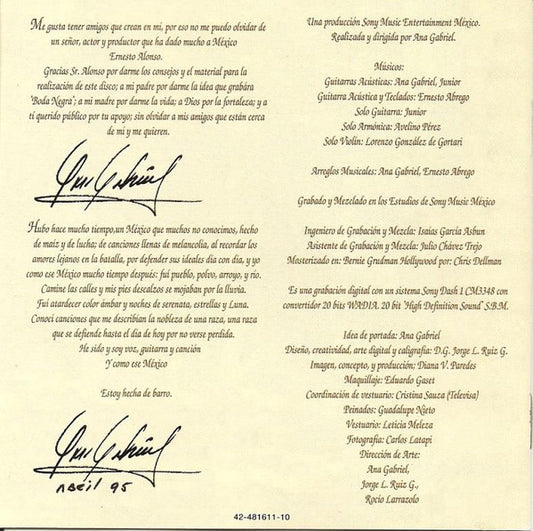 Me gusta tener amigos que crean en mi, por eso no me puedo olvidar de
un señor, actor y productor que ha dado mucho a México
Ernesto Alonso.
Gracias Sr. Alonso por darme los consejos y el material para la
realización de este disco; a mi padre por darme la idea que grabára
'Boda Negra'; a mi madre por darme la vida; a Dios por la fortaleza; y a
tí querido público por tu apoyo; sin olvidar a mis amigos que están cerca
de mi y me quieren.
Ana Gabriel
Hubo hace mucho tiempo,un México que muchos no conocimos, hecho
de maíz y de lucha; de canciones llenas de melancolía, al recordar los
amores lejanos en la batalla, por defender sus ideales día con día, y yo
como ese México mucho tiempo después: fui pueblo, polvo, arroyo, y río.
Camine las calles y mis pies descalzos se mojaban por la lluvia.
Fui atardecer color ámbar y noches de serenata, estrellas y Luna.
Conocí canciones que me describian la nobleza de una raza, una raza
que se defiende hasta el día de hoy por no verse perdida.
He sido y soy voz, guitarra y canción
Y como ese México
Estoy hecha de barro.
Ana Gabriel
Abril 95
Una producción Sony Music Entertainment México.
Realizada y dirigida por Ana Gabriel.
Músicos:
Guitarras Acústicas: Ana Gabriel, Junior
Guitarra Acústica y Teclados: Ernesto Abrego
Solo Guitarra: Junior
Solo Armónica: Avelino Pérez
Solo Violín: Lorenzo González de Gortari
Arreglos Musicales: Ana Gabriel, Ernesto Abrego
Grabado y Mezclado en los Estudios de Sony Music México
Ingeniero de Grabación y Mezcla: Isaias García Asbun
Asistente de Grabación y Mezcla: Julio Chávez Trejo
Masterizado en: Bernie Grudman Hollywood por: Chris Dellman
Es una grabación digital con un sistema Sony Dash 1 CM3348 con
convertidor 20 bits WADIA. 20 bit "High Definition Sound" S.B.M.
Idea de portada: Ana Gabriel
Diseño, creatividad, arte digital y caligrafía: D.G. Jorge L. Ruiz G.
Imagen, concepto, y producción: Diana V. Paredes
Maquillaje: Eduardo Gaset
Coordinación de vestuario: Cristina Sauza (Televisa)
Peinados: Guadalupe Nieto
Vestuario: Leticia Meleza
Fotografía: Carlos Latapi
Dirección de Arte:
Ana Gabriel,
Jorge L. Ruiz G.,
Rocío Larrazolo
42-481611-10